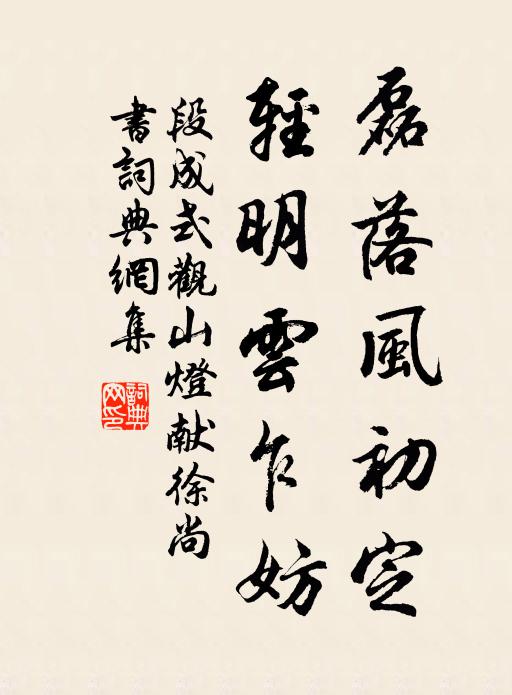 磊落風初定
輕明雲乍妨
段成式觀山燈献徐尚
書詞典網集
詞典
网印